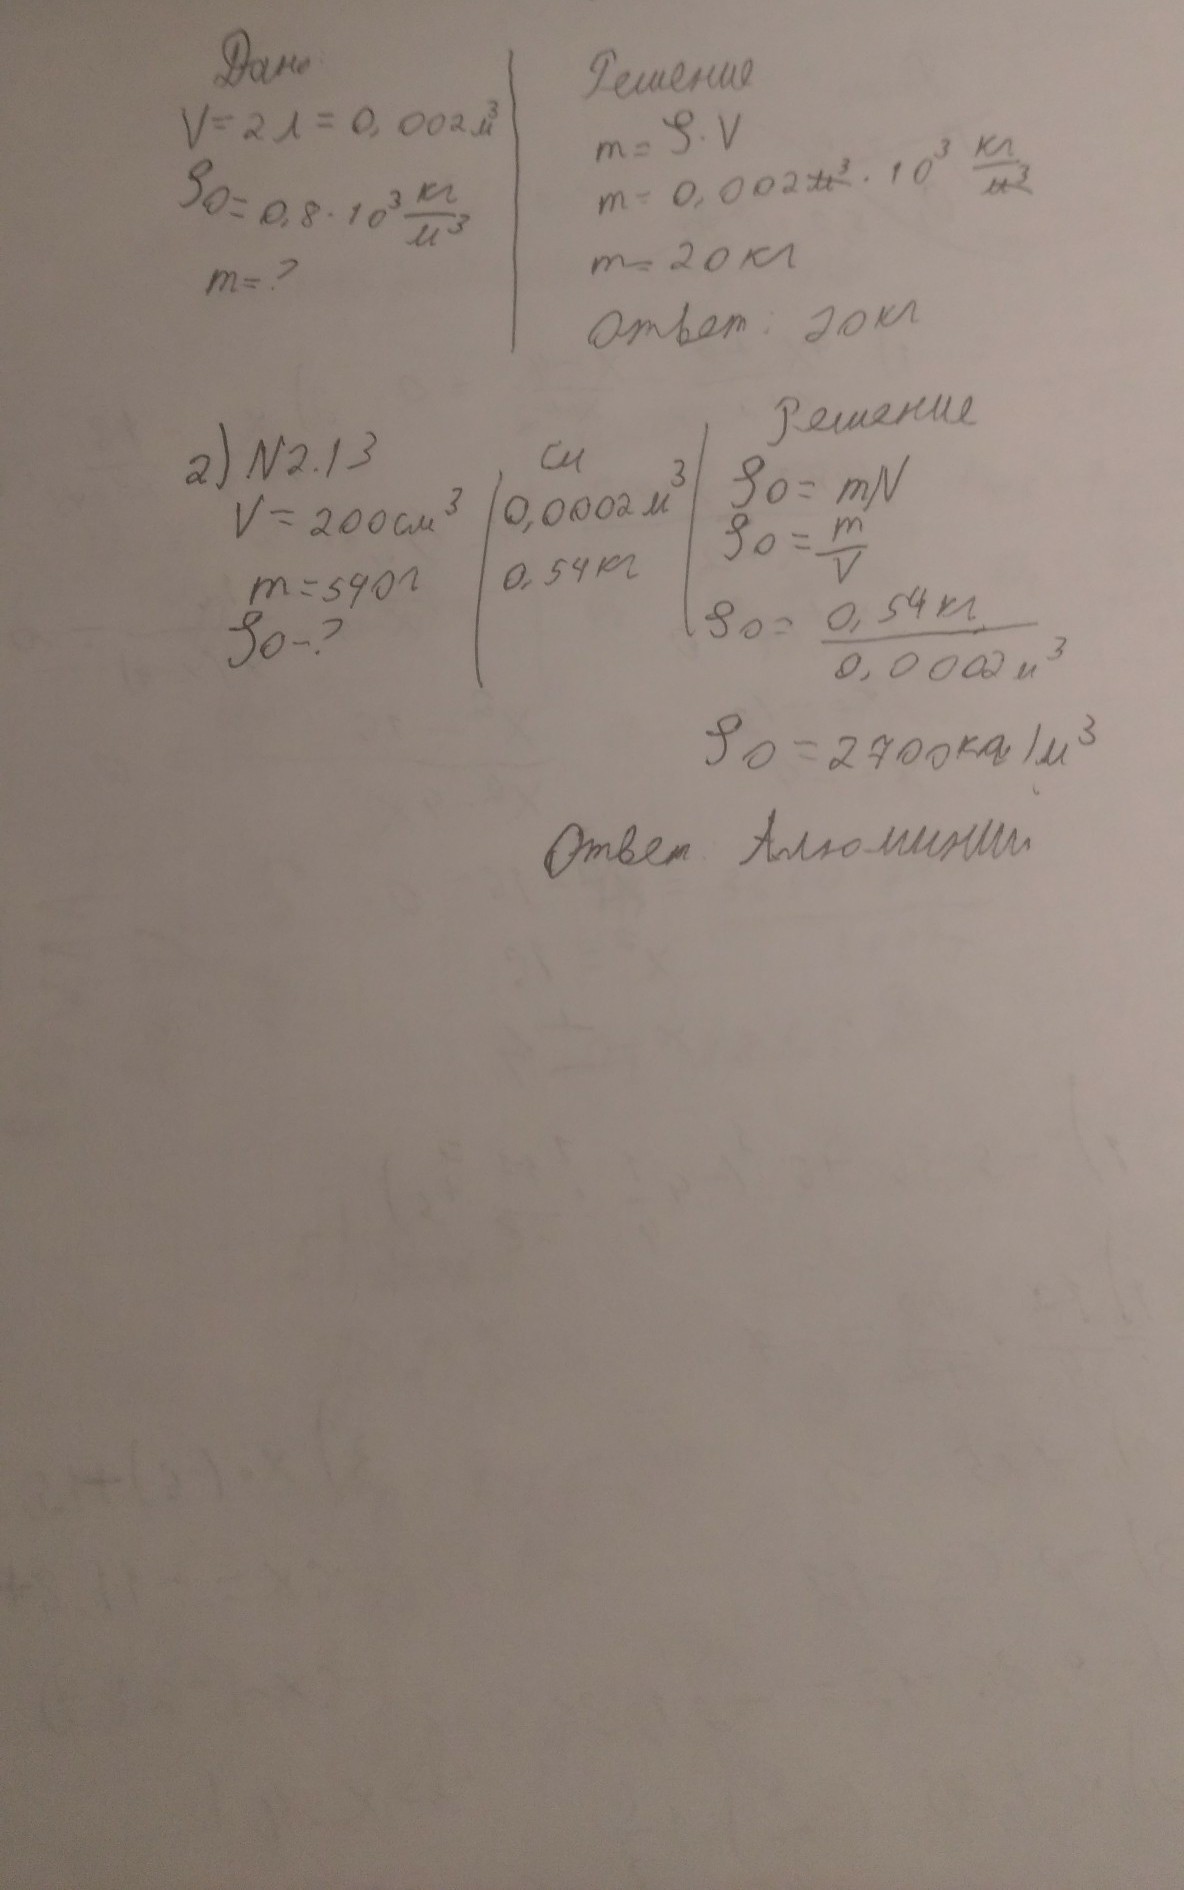 Дано
V=2л=0,002м³
ρ₀=0,8·10³ кг/м³
m=?
Решение
m=ρ·V
m=0,002м³·10³ кг/м³
m=20кг
Ответ: 20кг
2) N2.13
V=200см³
m=540г
ρ₀-?
си
0,0002м³
0,54кг
Решение
ρ₀=m/V
ρ₀=m/V
ρ₀=0,54кг/0,0002м³
ρ₀=2700кг/м³
Ответ: Алюминий